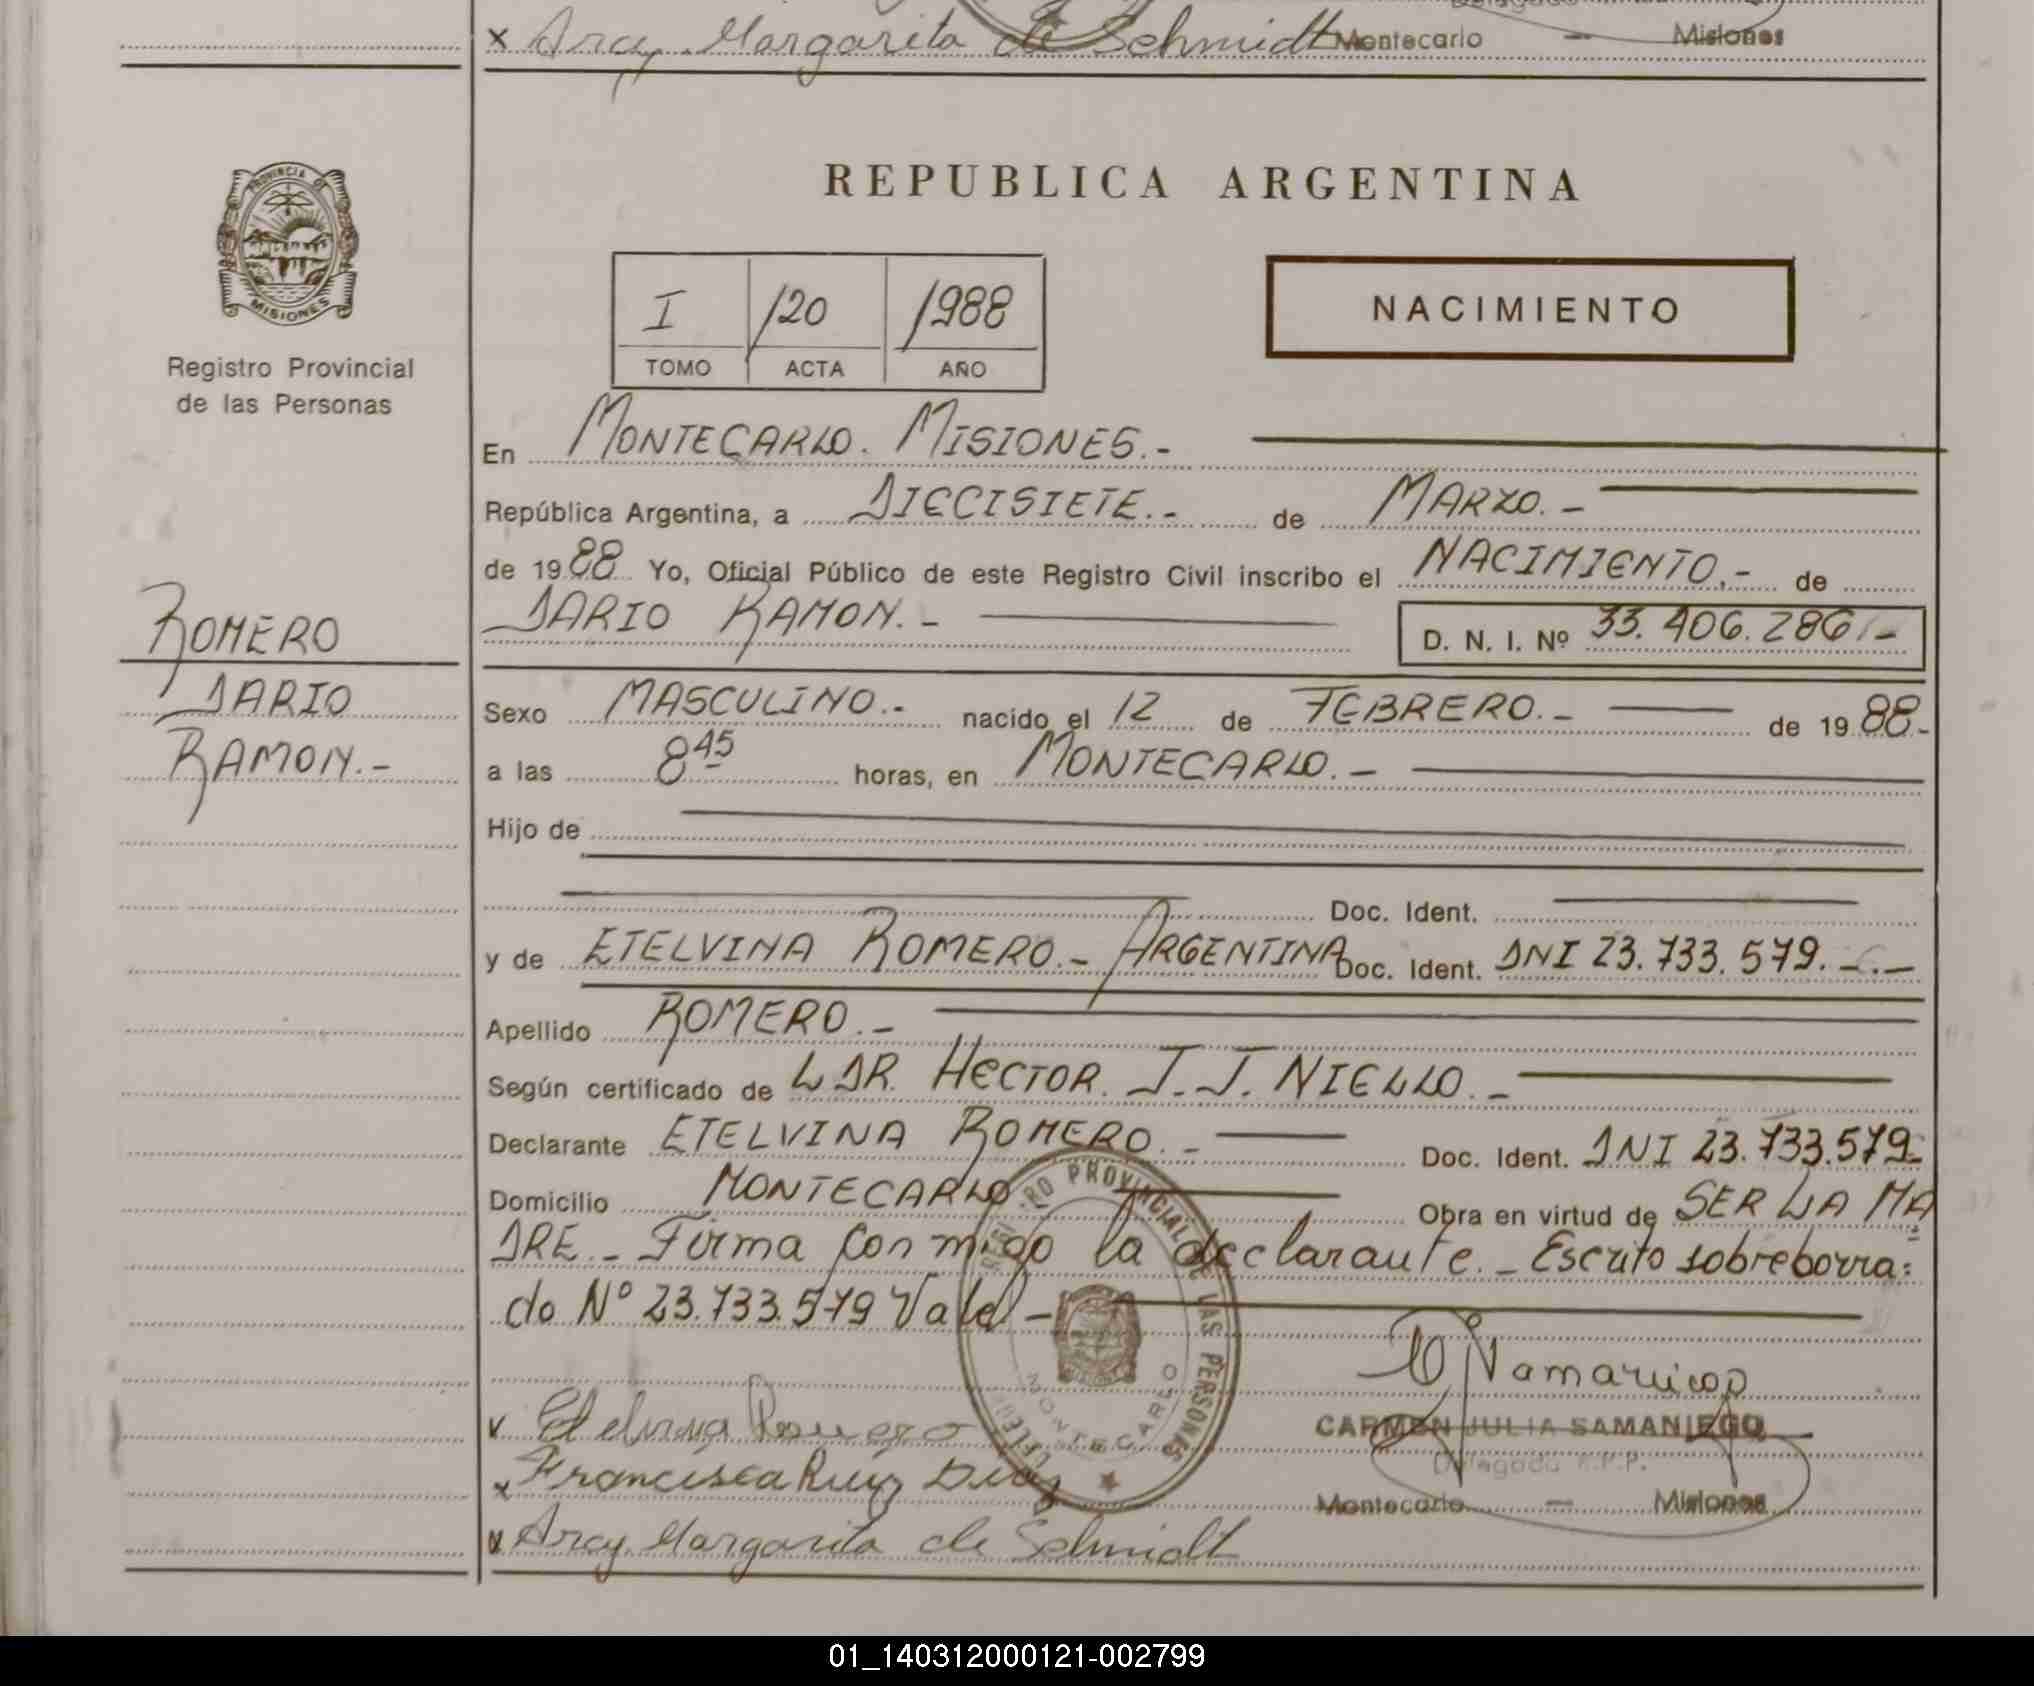 x Arcy Margarita de Schmidt Montecarlo — Misiones
PROVINCIA DE
MISIONES
Registro Provincial
de las Personas
REPUBLICA ARGENTINA
I 120 1988
TOMO ACTA AÑO
NACIMIENTO
En MONTECARLO. MISIONES.-
República Argentina, a DIECISIETE.- de MARZO.-
de 1988 Yo, Oficial Público de este Registro Civil inscribo el NACIMIENTO.- de
DARIO RAMON.- D. N. I. Nº 33.406.286.-
ROMERO
DARIO
RAMON.-
Sexo MASCULINO.- nacido el 12 de FEBRERO.- de 1988.-
a las 8 45 horas, en MONTECARLO.-
Hijo de
Doc. Ident.
y de ETELVINA ROMERO.- ARGENTINA Doc. Ident. DNI 23.733.579.-.-
Apellido ROMERO.-
Según certificado de L DR. HECTOR. J.J. NIELLO.-
Declarante ETELVINA ROMERO.- Doc. Ident. DNI 23.733.579-
Domicilio MONTECARLO Obra en virtud de SER LA MA
DRE.- Firma conmigo la declarante.- Escrito sobreborra:
do Nº 23.733.579 Vale.-
PROVINCIAL DE LAS PERSONAS
MONTECARLO
Etelvina Romero
CARMEN JULIA SAMANIEGO
Delegada R.P.P.
x Francisca Ruiz Diaz
Montecarlo — Misiones
Arcy Margarita de Schmidt
01_140312000121-002799